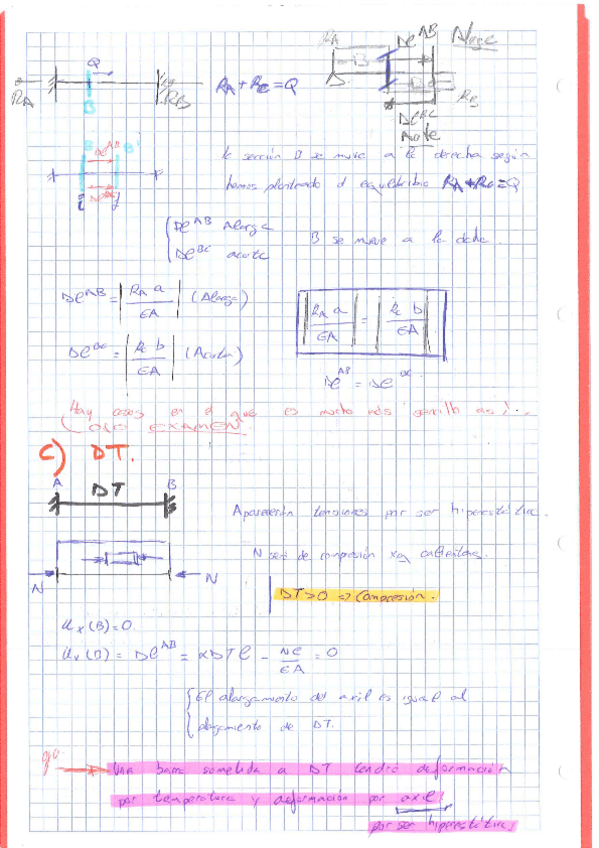 Q
RA
RB
B
RA + RC = Q
RA
B
Δl AB
Alarga
RB
Δl BC
Acorta
B B'
Δl AB
Δl BC
la sección B se mueve a la derecha según
hemos planteado el equilibrio RA + RC = Q
Δl AB Alarga
Δl BC acorta
B se mueve a la dcha.
Δl AB = | RA a / EA | (Alarga)
| RA a / EA | = | RC b / EA |
Δl BC = | RC b / EA | (Acorta)
Δl AB = Δl BC
Hay casos en el que es mucho más sencillo así!
COSO EXAMEN.
C) DT.
A DT B
Aparecerán tensiones por ser hiperestática.
N será de compresión xq calientas.
N N
DT > 0 => Compresión.
Ux(B) = 0.
Ux(B) = Δl AB = α DT l - Nl / EA = 0
El alargamiento del axil es igual al
alargamiento de DT.
Una barra sometida a DT tendrá deformación
por temperatura y deformación por axil
por ser hiperestática